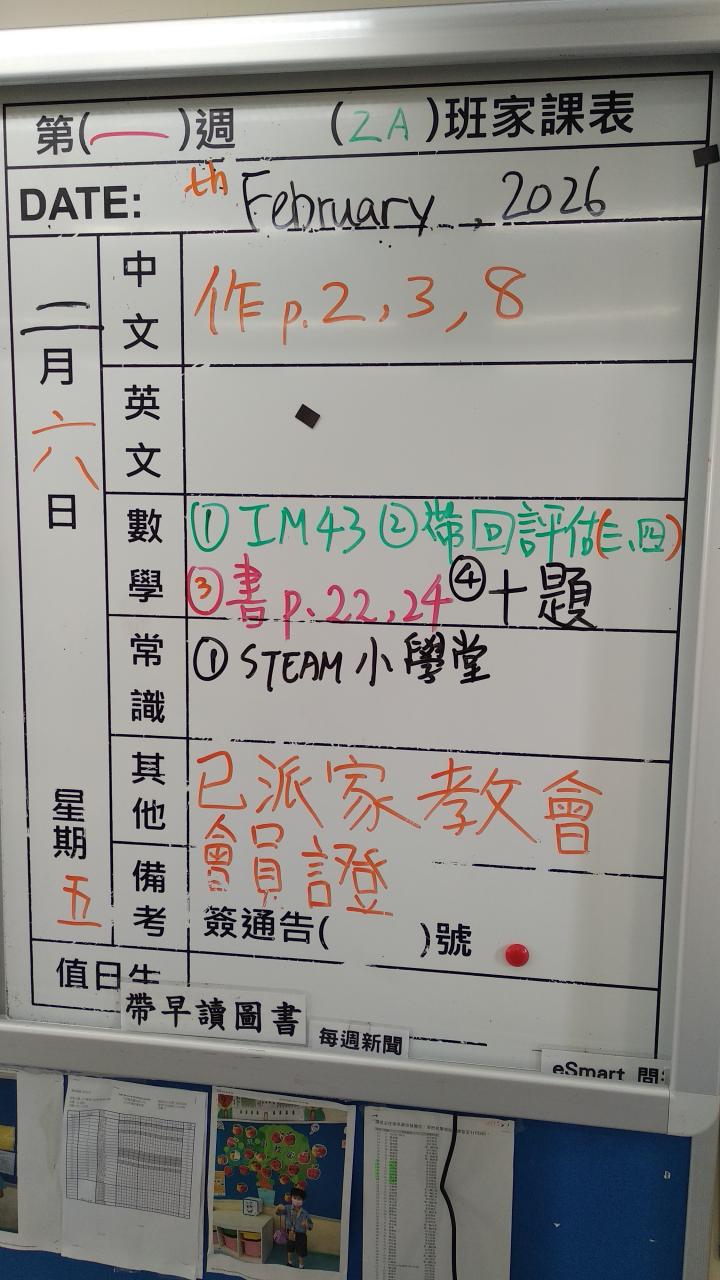 第( 一 )週 (2A)班家課表
DATE: th February, 2026
二月六日 星期五
中文 作 p.2,3,8
英文
數學 ①IM43 ②帶回評估(三、四)
③書p.22,24 ④十題
常識 ①STEAM小學堂
其他 已派家教會
會員證
備考 簽通告( )號
值日生
帶早讀圖書
每週新聞
eSmart 問